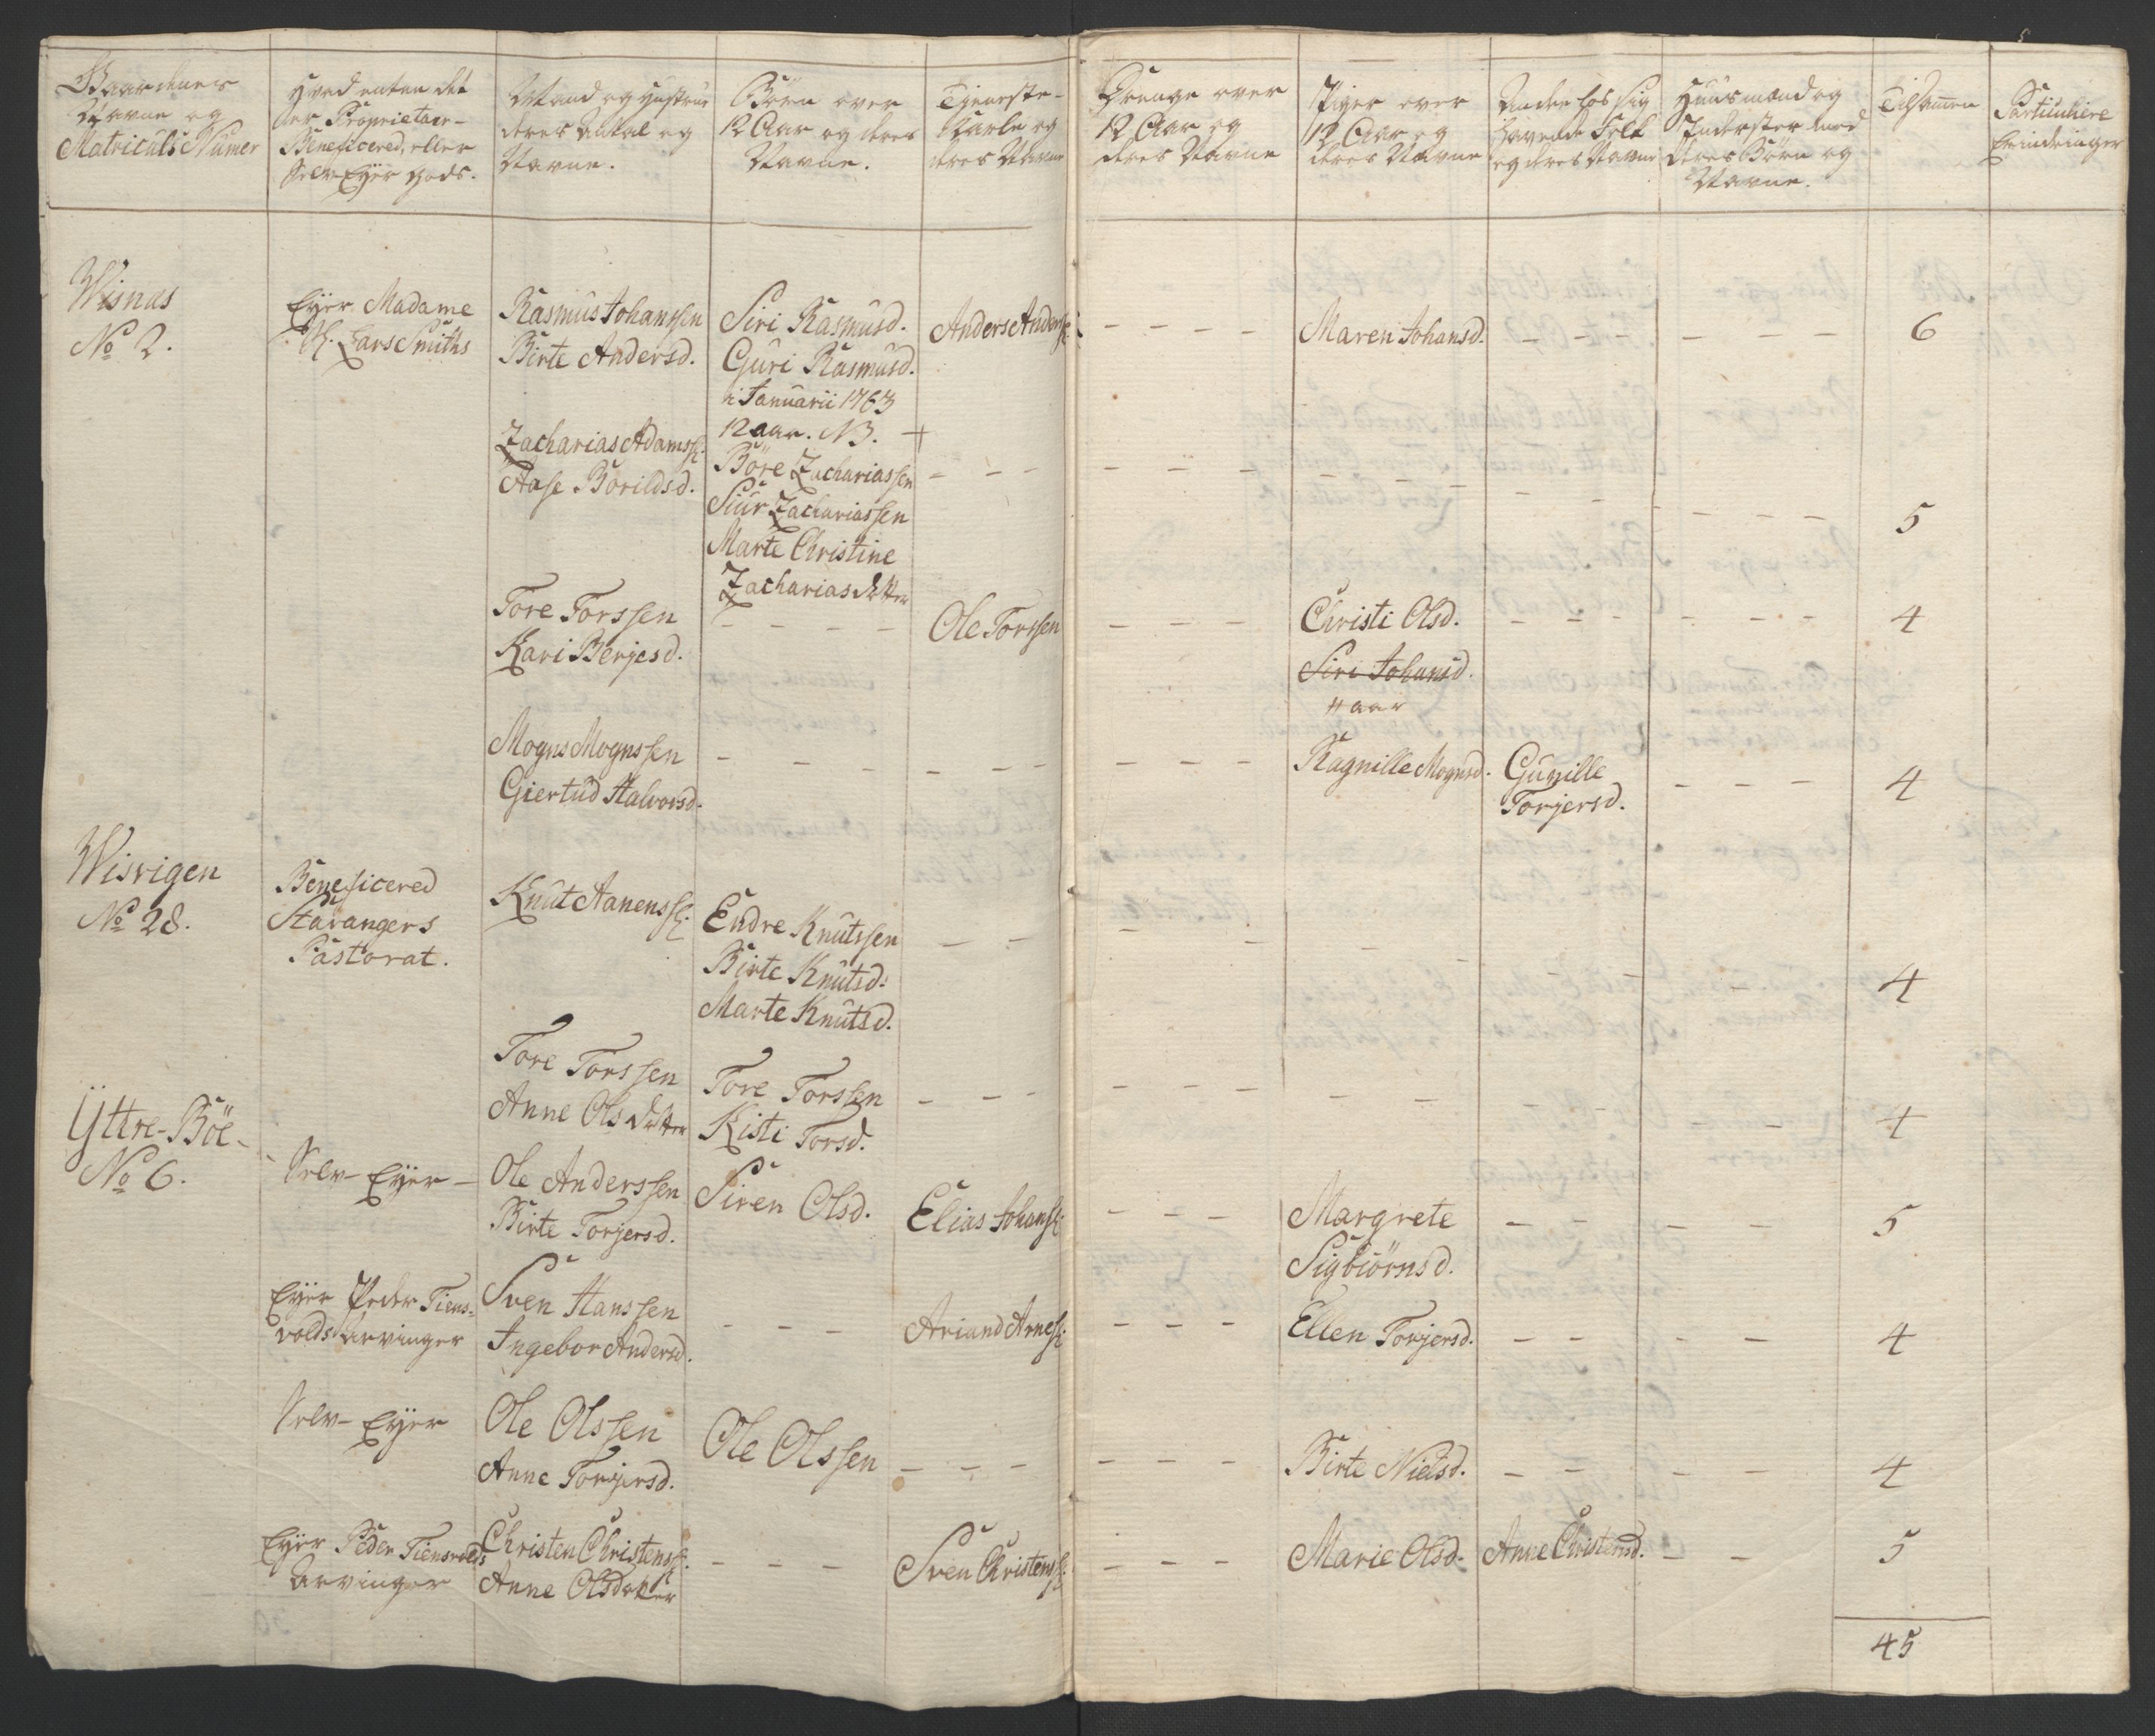 Gaardenes
Navne og
Matriculs Numer
Hvad enten det
er Proprietair-
Beneficered, eller
Selv Eyer gods.
Mand og Hustrue
deres Antal og
Navne.
Börn over
12 Aar og deres
Navne.
Tjeneste-
Karle og
deres Navne
Drenge over
12 Aar og
deres Navne
Piger over
12 Aar og
deres Navne
Andre hos sig
havende Folk
og deres Navne
Huusmænd og
Inderster med
deres Börn og
Navne.
Tilsammen
Particuliere
Erindringer
Wisnæs
No 2.
Eyer Madame
Lars Smiths
Rasmus Johanssen
Birte Andersd.
Siri Rasmusd.
Guri Rasmusd.
i Januarii 1763
12 aar. NB. +
Anders Anderss:
- - - -
Maren Johansd.
- - -
- - -
6
Zacharias Adamss:
Aase Börildsd.
Böre Zachariassen
Siur Zachariassen
Marte Christine
Zacharias datter
- - -
- - -
- - - -
- -
- - - -
5
Tore Torssen
Kari Berjesd.
- - - -
Ole Torssen
- - -
Christi Olsd.
Siri Johansd.
11 aar
- - -
- - - -
4
Mogns Mognssen
Giertud Halvorsd.
- - - -
- - - -
- - -
Ragnille Mognsd.
Gunille
Torjersd.
- - -
4
Wisvigen
No 28.
Beneficered
Stavangers
Pastorat.
Knut Aanenss:
Endre Knutssen
Birte Knutsd:
Marte Knutsd.
- -
- -
- -
- -
-
4
Tore Torssen
Anne Ols datter
Tore Torssen
Kisti Torsd.
- - -
- - -
- -
- -
- -
4
Yttre-Böe-
No 6.
Selv-Eyer -
Ole Anderssen
Birte Torjersd.
Siren Olsd.
Elias Johanss:
- - -
Margrete
Sigbiörnsd.
- -
- -
5
Eyer Peder Tiens-
volds Arvinger
Sven Hanssen
Ingebor Andersd.
- - -
Ariand Arness:
- - -
Ellen Torjersd.
- -
- -
4
Selv-Eyer
Ole Olssen
Anne Torjersd.
Ole Olssen
- - -
- - -
Birte Nielsd.
- -
- -
4
Eyer Peder Tiensvolds
Arvinger
Christen Christenss:
Anne Olsdatter
- - -
Sven Christenss:
- - -
Marie Olsd.
Anne Christensd.
- -
5
45